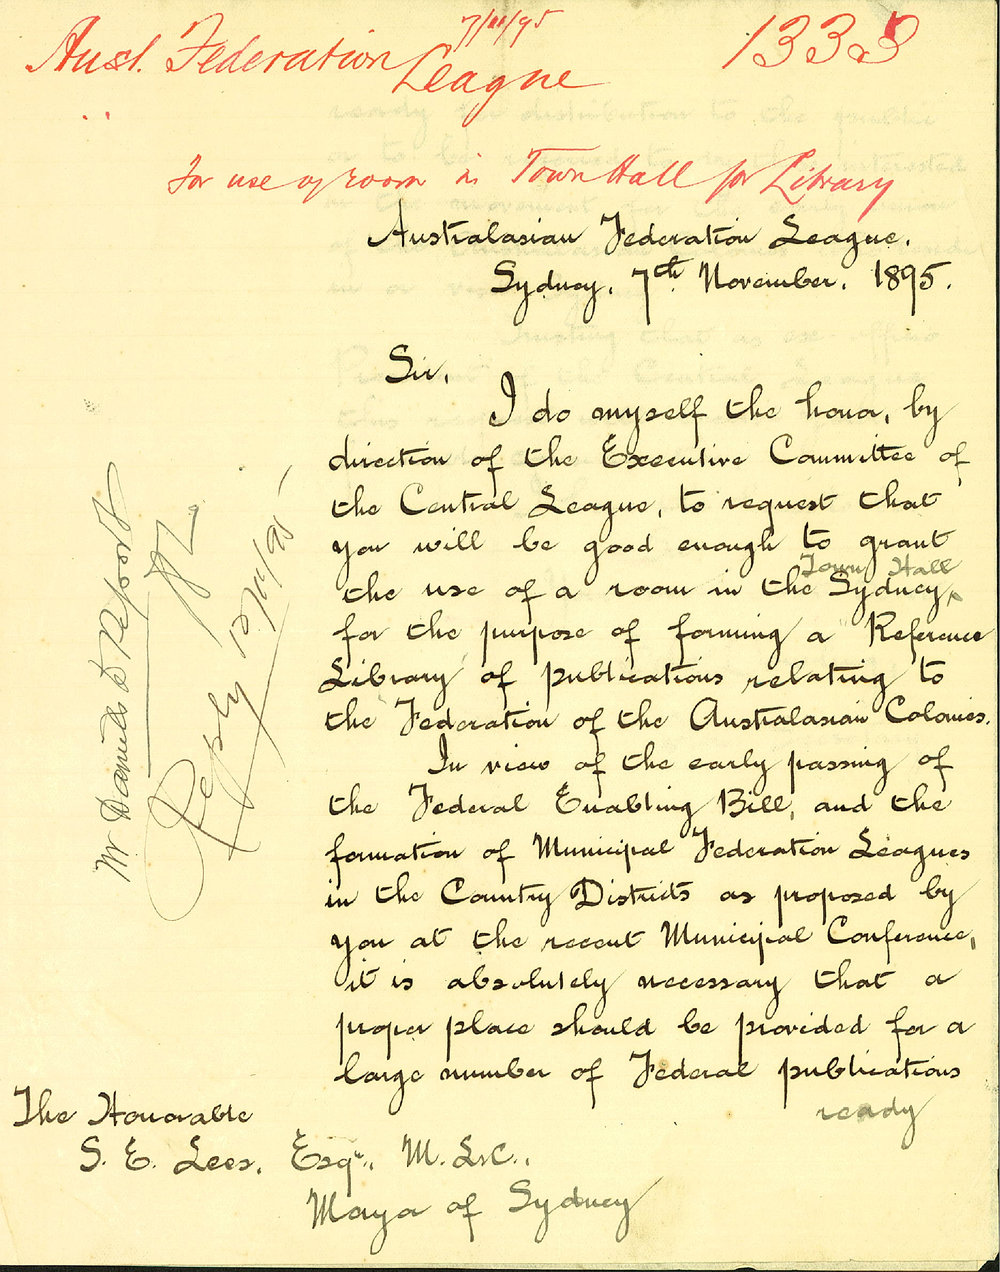 7/11/95
Aust. Federation
League
1333
For use of room in Town Hall for Library
Australasian Federation League.
Sydney, 7th November, 1895.
Sir,
I do myself the honor, by
direction of the Executive Committee of
the Central League, to request that
you will be good enough to grant
Town Hall
the use of a room in the Sydney^
for the purpose of forming a Reference
Library of publications relating to
the Federation of the Australasian Colonies.
In view of the early passing of
the Federal Enabling Bill, and the
formation of Municipal Federation Leagues
in the Country Districts as proposed by
you at the recent Municipal Conference,
it is absolutely necessary that a
proper place should be provided for a
large number of Federal publications
ready
The Honorable
S. E. Lees, Esqr., M.L.C.,
Mayor of Sydney
Mr Daniels to Report
Reply 12/11/95